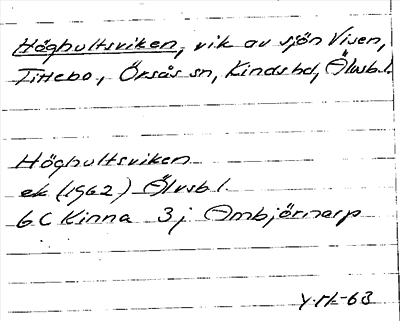 Höghultsviken, vik av sjön Visen,
Tittebo, Örsås sn, Kinds hd, Älvsb.l.
Höghultsviken
ek (1962) Älvsb l.
6C Kinna 3j Ambjörnarp